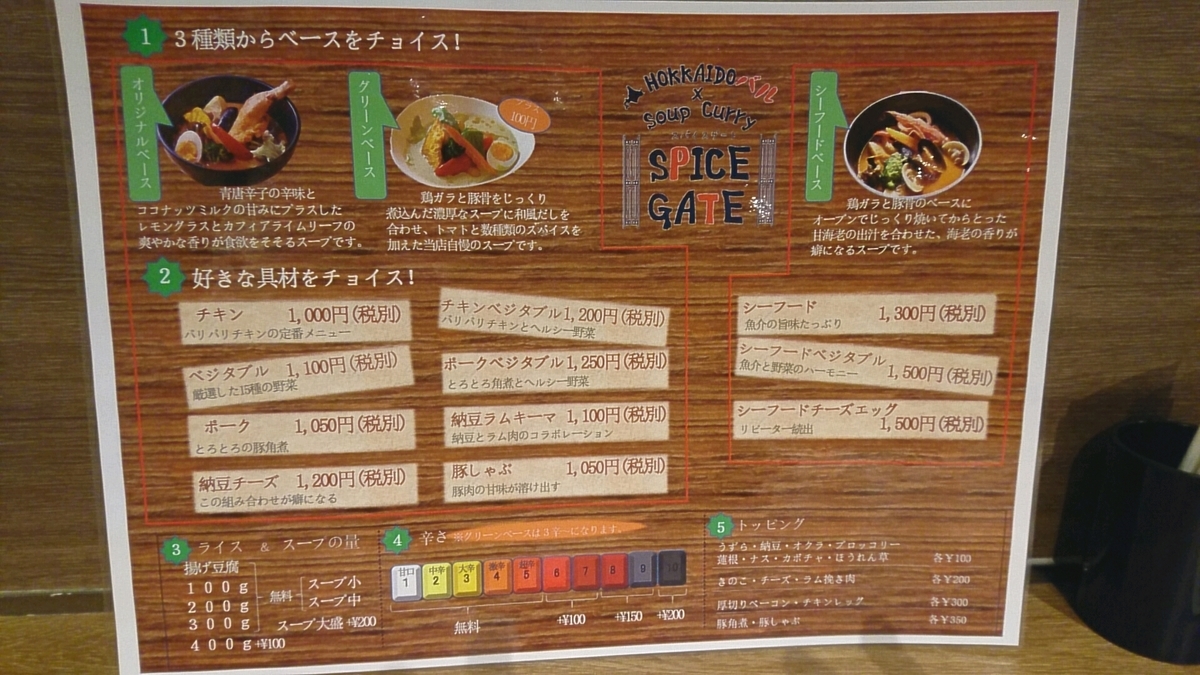 1 3種類からベースをチョイス!
オリジナルベース
青唐辛子の辛味と
ココナッツミルクの甘みにプラスした
レモングラスとカフィアライムリーフの
爽やかな香りが食欲をそそるスープです。
グリーンベース
プラス
100円
鶏ガラと豚骨をじっくり
煮込んだ濃厚なスープに和風だしを
合わせ、トマトと数種類のスパイスを
加えた当店自慢のスープです。
HOKKAIDOバル
×
Soup Curry
SPICE
GATE
シーフードベース
鶏ガラと豚骨のベースに
オーブンでじっくり焼いてからとった
甘海老の出汁を合わせた、海老の香りが
癖になるスープです。
2 好きな具材をチョイス!
チキン 1,000円(税別)
パリパリチキンの定番メニュー
ベジタブル 1,100円(税別)
厳選した15種の野菜
ポーク 1,050円(税別)
とろとろの豚角煮
納豆チーズ 1,200円(税別)
この組み合わせが癖になる
チキンベジタブル 1,200円(税別)
パリパリチキンとヘルシー野菜
ポークベジタブル 1,250円(税別)
とろとろ角煮とヘルシー野菜
納豆ラムキーマ 1,100円(税別)
納豆とラム肉のコラボレーション
豚しゃぶ 1,050円(税別)
豚肉の甘味が溶け出す
シーフード 1,300円(税別)
魚介の旨味たっぷり
シーフードベジタブル 1,500円(税別)
魚介と野菜のハーモニー
シーフードチーズエッグ 1,500円(税別)
リピーター続出
3 ライス & スープの量
揚げ豆腐
100g
200g
300g
400g+¥100
無料
スープ小
スープ中
スープ大盛+¥200
4 辛さ ※グリーンベースは3辛〜になります。
甘口 中辛 大辛 激辛 超辛
1 2 3 4 5 6 7 8 9 10
無料 +¥100 +¥150 +¥200
5 トッピング
うずら・納豆・オクラ・ブロッコリー
蓮根・ナス・カボチャ・ほうれん草 各¥100
きのこ・チーズ・ラム挽き肉 各¥200
厚切りベーコン・チキンレッグ 各¥300
豚角煮・豚しゃぶ 各¥350